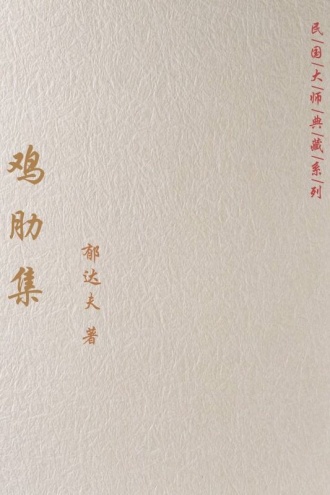 民国大师典藏系列
鸡肋集
郁达夫 著